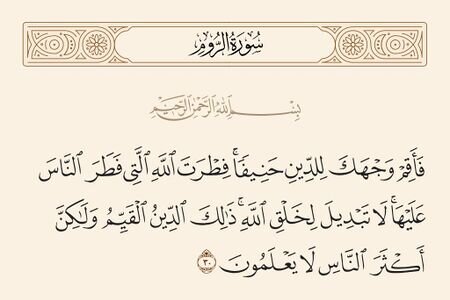 سُورَةُ الرُّومِ
بِسْمِ اللَّهِ الرَّحْمَٰنِ الرَّحِيمِ
فَأَقِمْ وَجْهَكَ لِلدِّينِ حَنِيفًا ۚ فِطْرَتَ ٱللَّهِ ٱلَّتِى فَطَرَ ٱلنَّاسَ
عَلَيْهَا ۚ لَا تَبْدِيلَ لِخَلْقِ ٱللَّهِ ۚ ذَٰلِكَ ٱلدِّينُ ٱلْقَيِّمُ وَلَٰكِنَّ
أَكْثَرَ ٱلنَّاسِ لَا يَعْلَمُونَ ٣٠